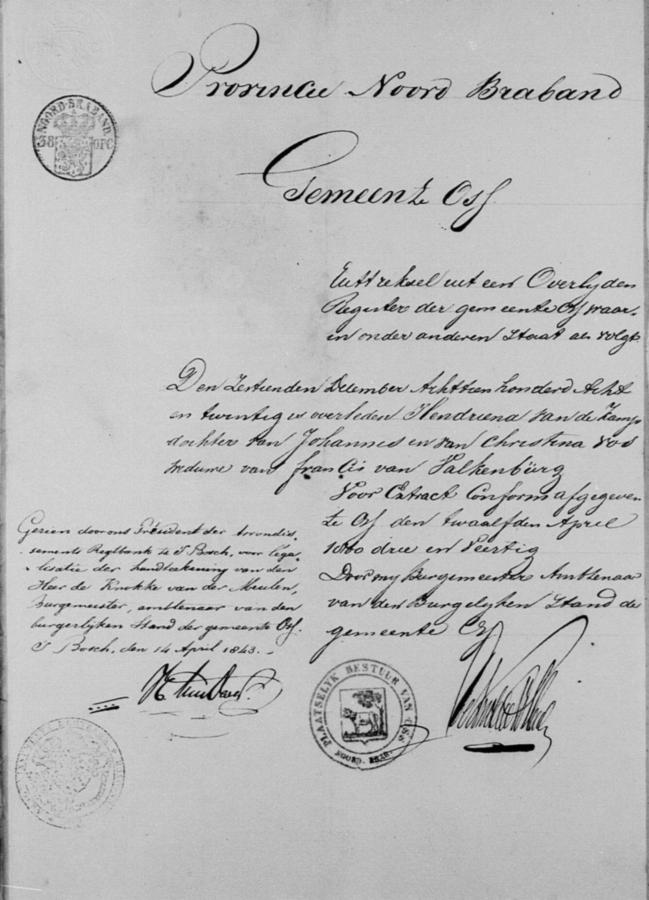 Provincie Noord Braband
NOORD-BRABAND
38 OPC
Gemeente Oss
Exttreksel uit een Overlyden
Register der gemeente Oss waar-
in onder anderen staat als volgt
Den Zestienden December Achttien honderd Acht
en twintig is overleden Hendriena van de Kamp
dochter van Johannes en van Christina Vos
weduwe van francis van Valkenburg
Voor Extract Conform afgegeven
te Oss den twaalfden April
1800 drie en Veertig
Door my Burgemeester Ambtenaar
van den Burgelyken Stand de
gemeente Oss
Gezien door ons President der Arrondis-
sements Regtbank te S Bosch, voor lega-
lisatie der handteekening van den
Heer de Knokke van der Meulen,
Burgemeister, ambtenaar van den
burgerlijken Stand der gemeente Oss.
S Bosch, den 14 April 1843.
PLAATSELYK BESTUUR VAN OSS
NOORD. BRAB.